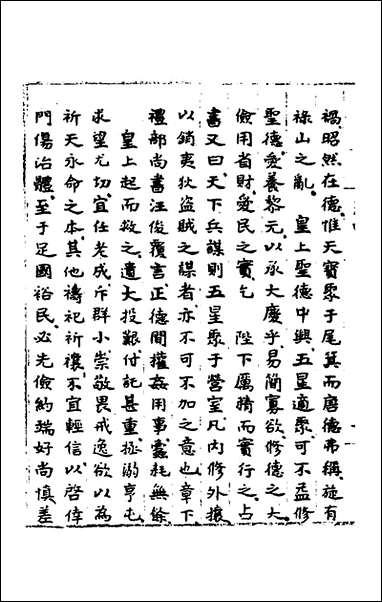 禍昭然在德惟天寶聚于尾箕而唐德弗稱旋有
祿山之亂　皇上聖德中興五星適聚可不益修
聖德愛養黎元以承大慶乎易簡寡欲修德之大
儉用省財愛民之實乞　陛下厲精而實行之占
書又曰天下兵謀則五星聚于營室凡內修外攘
以銷夷狄盜賊之謀者亦不可不加之意也章下
禮部尚書汪俊覆言正德間權姦用事蠹耗無餘
皇上起而救之遺大投艱付託甚重拯溺亨屯
求望尤切宜任老成斥群小崇敬畏戒逸欲以為
祈天永命之本其他禱祀祈禳不宜輕信以啓倖
門傷治體至于足國裕民必先儉約端好尚慎差